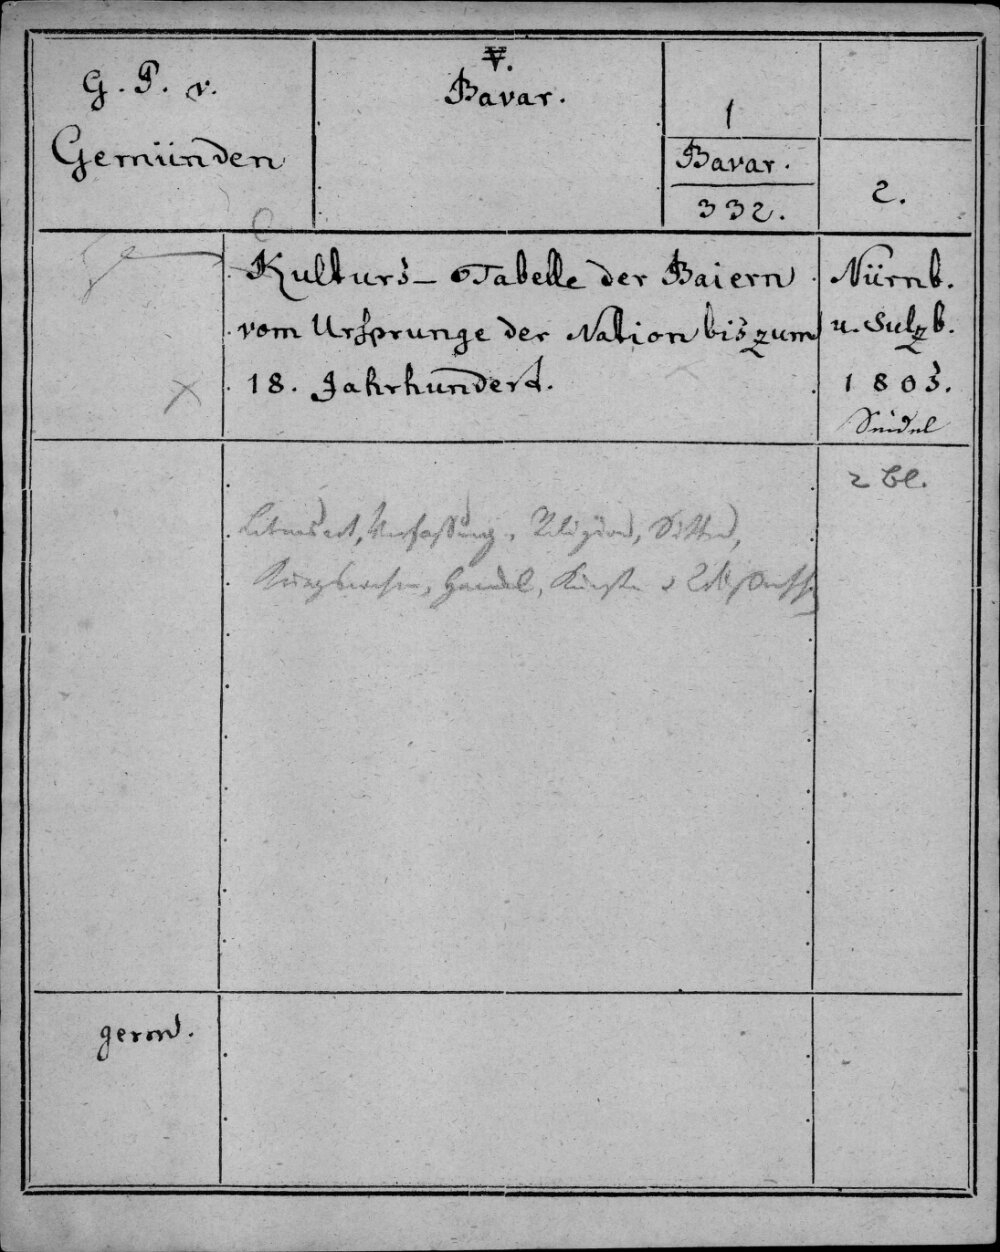 G. P. v.
Gemünden
V.
Bavar.
1
Bavar.
332.
2.
Kulturs-Tabelle der Baiern
vom Ursprunge der Nation bis zum
18. Jahrhundert.
Nürnb.
u. Sulzb.
1805.
Seidel
2 Bl.
Lebensart, Verfassung, Religion, Sitten,
Kriegswesen, Handel, Künste
germ.